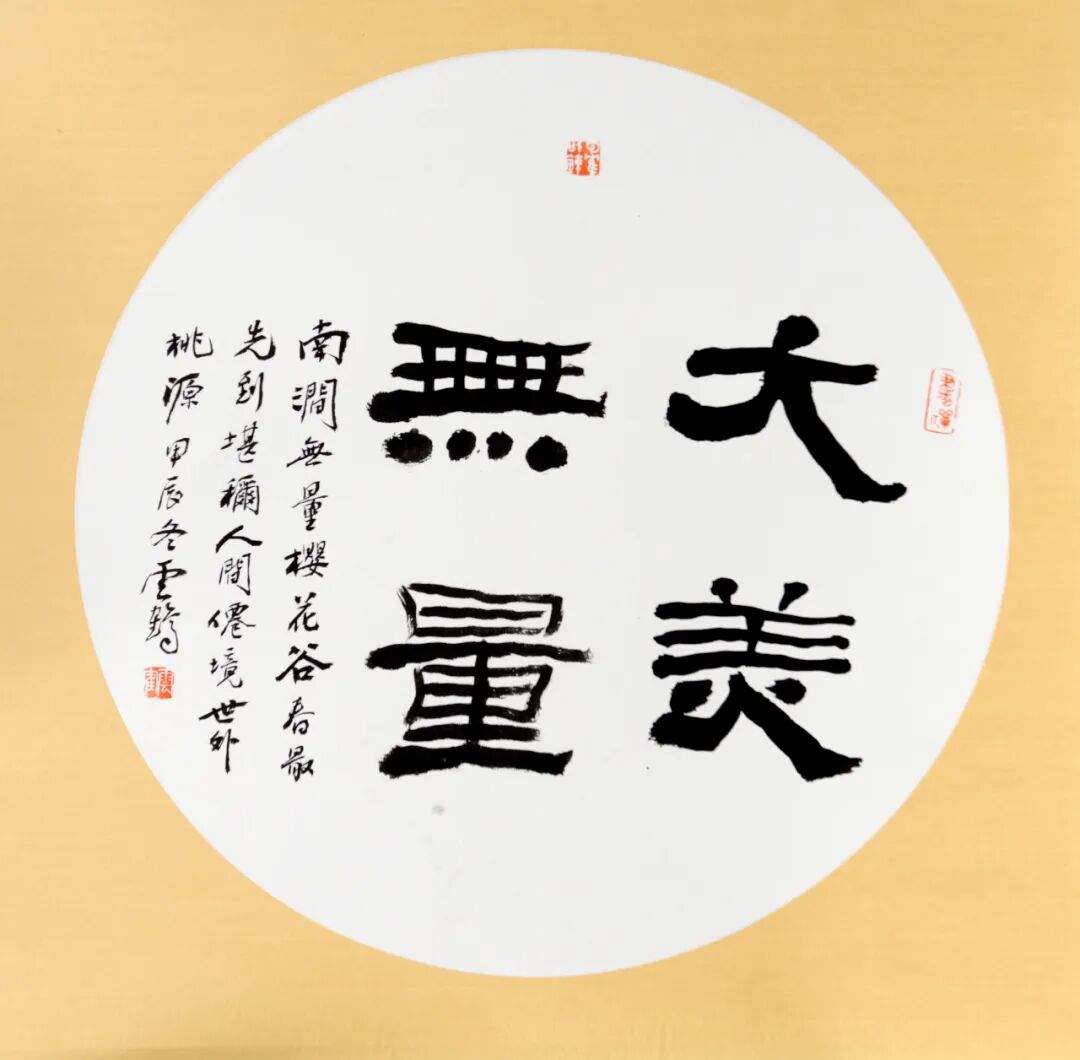 大美
無量
南澗無量櫻花谷春最
先到堪稱人間僊境世外
桃源甲辰冬雲鶴